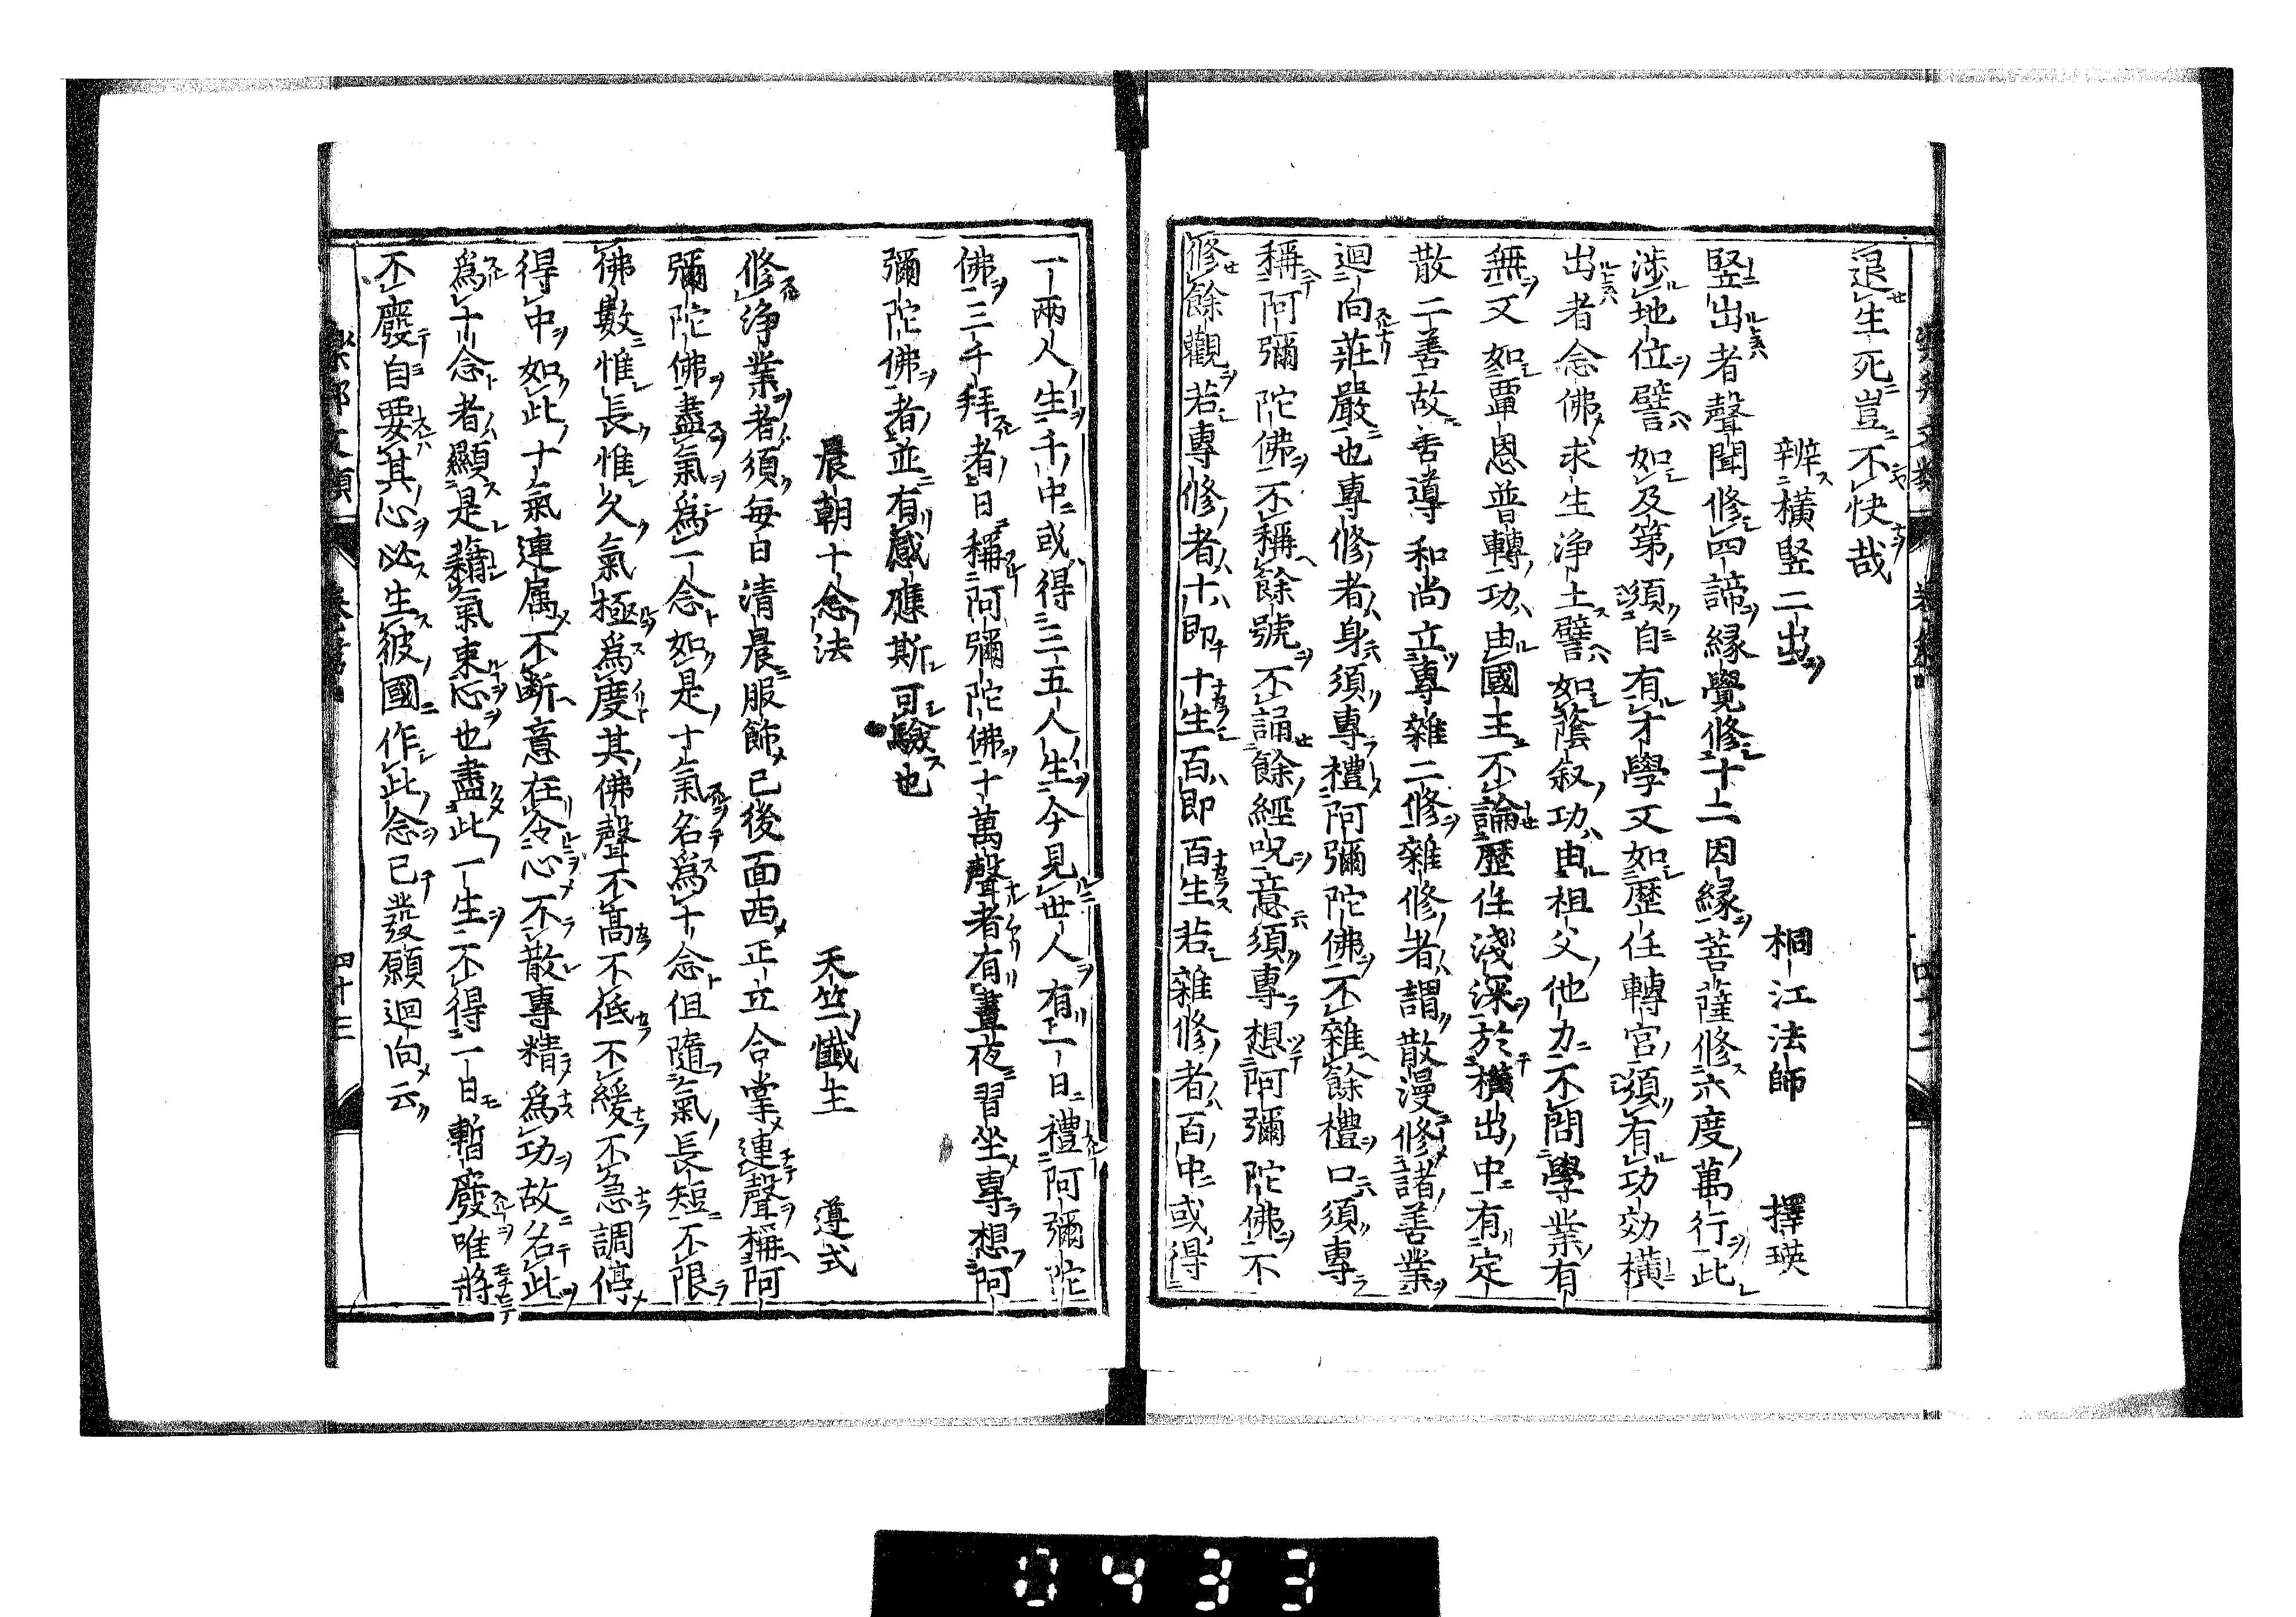 退生死豈不快哉
辨橫竪二出 桐江法師 擇瑛
竪出者聲聞修四諦緣覺修十二因緣菩薩修六度萬行此
涉地位譬如及第須自有才學又如歷任轉官須有功効橫
出者念佛求生淨土譬如蔭叙功由祖父他力不問學業有
無又如覃恩普轉功由國王不論歷任淺深於橫出中有定
散二善故善導和尚立專雜二修雜修者謂散漫修諸善業
迴向莊嚴也專修者身須專禮阿彌陀佛不雜餘禮口須專
稱阿彌陀佛不稱餘號不誦餘經呪意須專想阿彌陀佛不
修餘觀若專修者十即十生百即百生若雜修者百中或得
一兩人生千中或得三五人生今見世人有一日禮阿彌陀
佛三千拜者日稱阿彌陀佛十萬聲者有晝夜習坐專想阿
彌陀佛者並有感應斯可驗也
晨朝十念法 天竺懺主 遵式
修淨業者須每日清晨服飾已後面西正立合掌連聲稱阿
彌陀佛盡氣爲一念如是十氣名爲十念但隨氣長短不限
佛數惟長惟久氣極爲度其佛聲不高不低不緩不急調停
得中如此十氣連屬不斷意在令心不散專精爲功故名此
爲十念者顯是藉氣束心也盡此一生不得一日暫廢唯將
不廢自要其心必生彼國作此念已發願迴向云
樂邦文類 四十三
0433